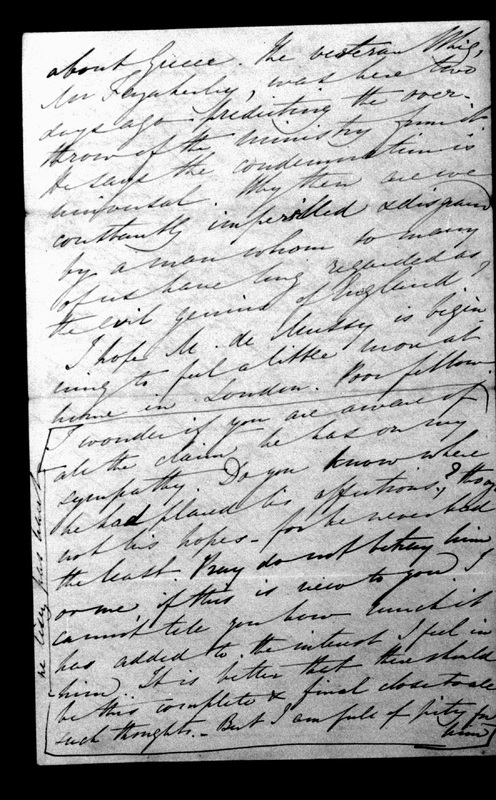 about Greece. The veteran Whig,
Mr Fazakerley, was here two
days ago predicting the over-
throw of the ministry from it
He says the condemnation is
universal. Why then are we
constantly imperilled & disgraced
by a man whom so many
of us have long regarded as
the evil genius of England,
I hope M. de Mussy is begin
ning to feel a little more at
home in London. Poor fellow
I wonder if you are aware of
all the claims he has on my
sympathy. Do you know where
he had placed his affections, though
not his hopes - for he never had
the least. Pray do not betray him
or me if this is new to you I
cannot tell you how much it
has added to the interest I feel in
him. It is better that there should
be this complete & final close to all
such thoughts. - But I am full of pity for
him